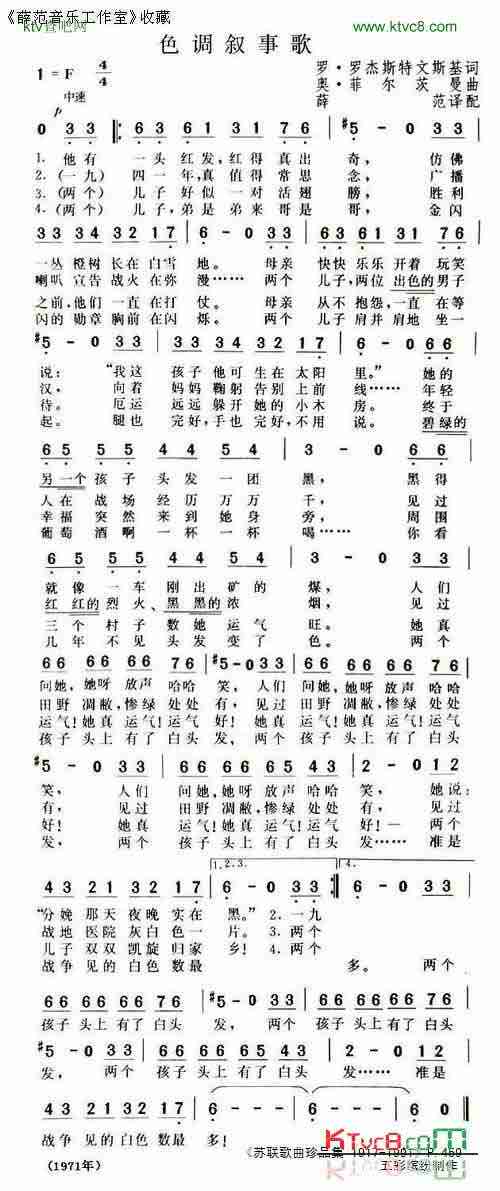 《薛范音乐工作室》收藏
ktv管吧网
www.ktvc8.com
色调叙事歌
1=F 4/4
中速
p
罗·罗杰斯特文斯基词
奥·菲尔茨曼曲
薛 范译配
0 33 | 63 43 31 76 | #5 - 0 33
1. 他有 一头 红发,红得 真出 奇, 仿佛
2.(一九) 四一 年,真值得 常思 念, 广播
3.(两个) 儿子 好似 一对 活翅 膀, 胜利
4.(两个) 儿子,弟是 弟来 哥是 哥, 金闪
33 34 43 22 32 17 | 6 - 0 33 | 63 43 61 31
一丛 橙树 长在 白雪 地。 母亲 快快 乐乐 开着 玩笑
喇叭 宣告 战火 在弥 漫…… 两个 儿子,两位 出色的 男子
之前,他们 一直 在打 仗。 母亲 从不 抱怨,一直 在等
闪的 勋章 胸前 在闪 烁。 两个 儿子 肩并 肩地 坐一
说: “我这 孩子 他可 生在 太阳 里。” 她的
汉, 向着 妈妈 鞠躬 告别 上前 线…… 年轻
待。 厄运 远远 躲开 她的 小木 房。 终于
起。 腿也 完好,手也 完好,不用 说。 碧绿的
另一个 孩子 头发 一团 黑, 黑得
人在 战场 经历 万万 千, 见过
幸福 突然 来到 她身 旁, 周围
葡萄 酒啊 一杯 一杯 喝…… 你看
就像 一车 刚出 矿的 煤, 人们
红红的 烈火、黑黑的 浓 烟, 见过
三个 村子 数她 运气 旺。 她真
几年 不见 头发 变了 色。 两个
66 66 66 76 | #5 - 0 33 | 66 66 66 76
问她,她呀 放声 哈哈 笑,人们 问她,她呀 放声 哈哈
田野 凋敝,惨绿 处处 有,见过 田野 凋敝,惨绿 处处
运气!她真 运气!运气 好!她真 运气!她真 运气!运气
孩子 头上 有了 白头 发, 两个 孩子 头上 有了 白头
笑, 人们 问她,她呀 放声 哈哈 笑, 她说:
有, 见过 田野 凋敝,惨绿 处处 有, 见过
好! 她真 运气!她真 运气!运气 好!— 两个
发, 两个 孩子 头上 有了 白头 发…… 准是
1.2.3. 4.
43 21 32 17 | 6 - 0 33 :| 6 - 0 33
“分娩 那天 夜晚 实在 黑。” 2. 一九
战地 医院 灰白 色一 片。 3. 两个
儿子 双双 凯旋 归家 乡! 4. 两个
战争 见的 白色 数最 多。 两个
66 66 66 76 | #5 - 0 33 | 66 66 66 76
孩子 头上 有了 白头 发, 两个 孩子 头上 有了 白头
#5 - 0 33 | 66 66 65 43 | 1 - 0 12
发, 两个 孩子 头上 有了 白头 发…… 准是
43 21 32 17 | 6 - 0 0 | 6 - - - | 6 - - -
战争 见的 白色 数最 多。
(1971年)
《苏联歌曲珍品集 1917-1991》P.459
KTvc8.com
王彩缤纷制作